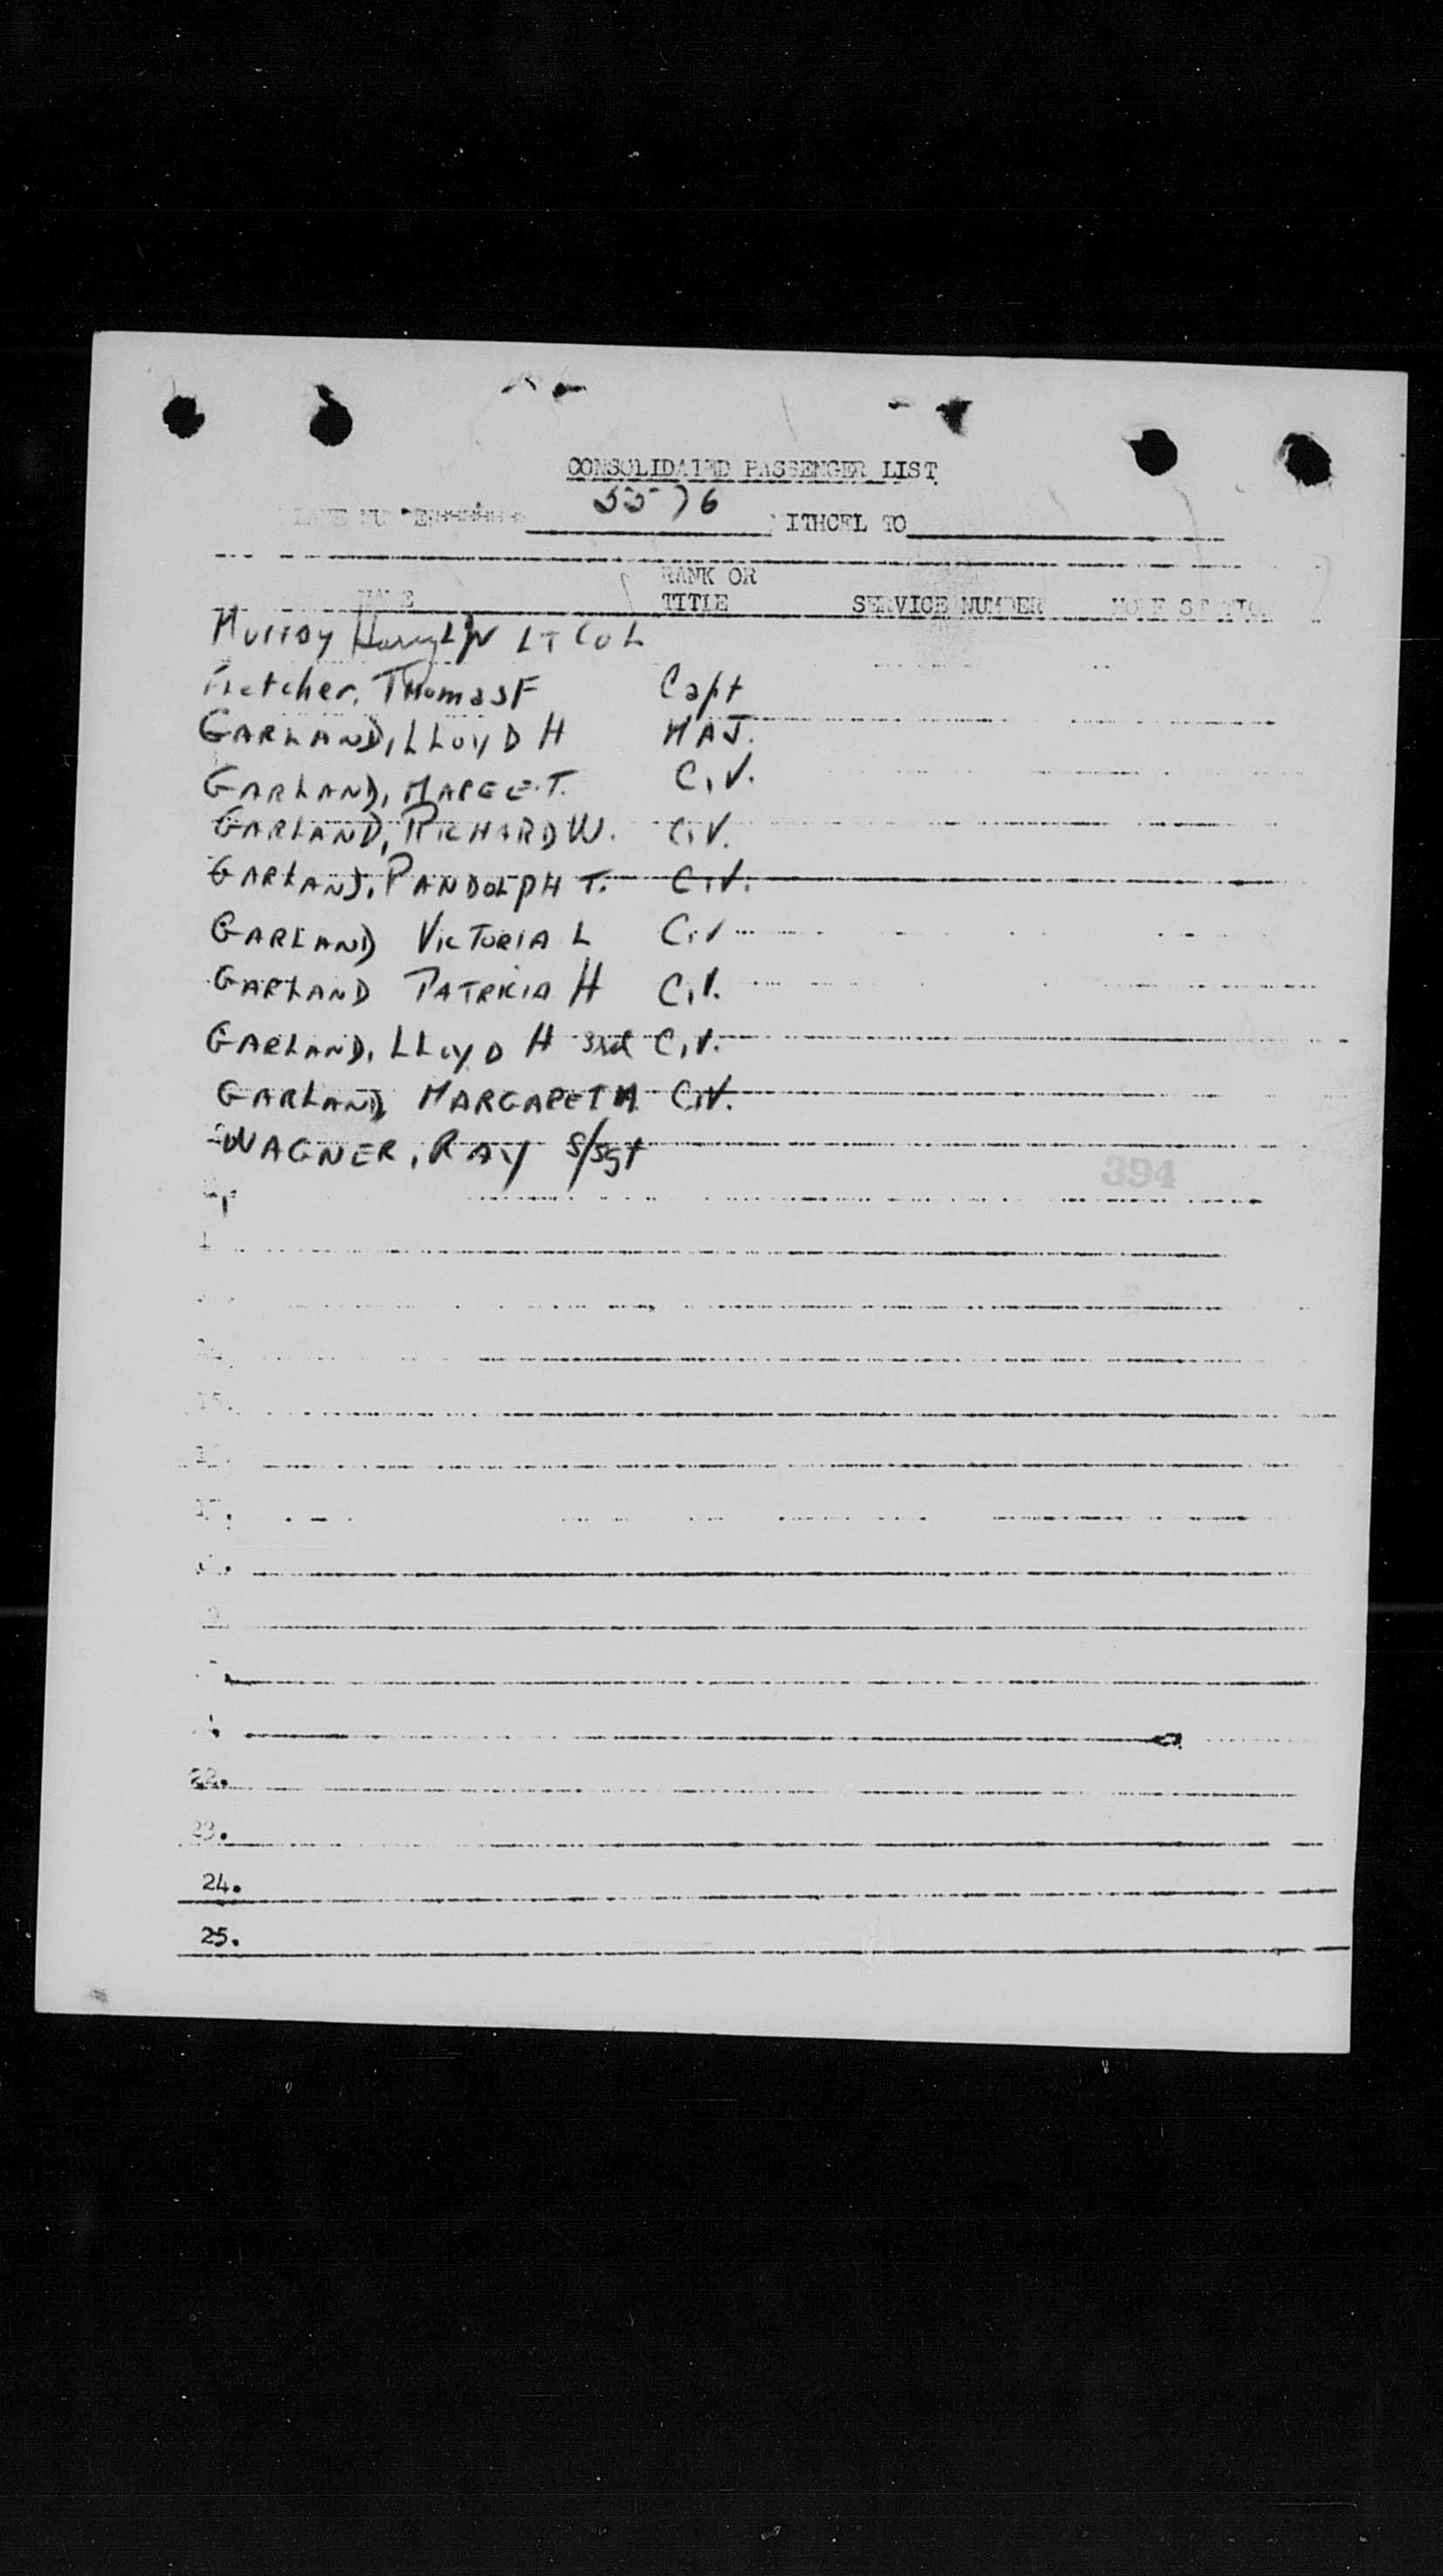 CONSOLIDATED PASSENGER LIST
5576 ITHCEL TO
RANK OR
NAME TITLE SERVICE NUMBER HOME STATION
Murray LT COL
Fletcher, Thomas F Capt
GARLAND, LLOYD H MAJ.
GARLAND, T. CIV.
GARLAND, RICHARD W. CIV.
GARLAND, RANDOLPH T. CIV.
GARLAND VICTORIA L CIV
GARLAND PATRICIA H CIV.
GARLAND, LLOYD H 3rd CIV.
GARLAND, MARGARET M CIV.
WAGNER, RAY S/Sgt
394
1
15.
17.
22.
23.
24.
25.